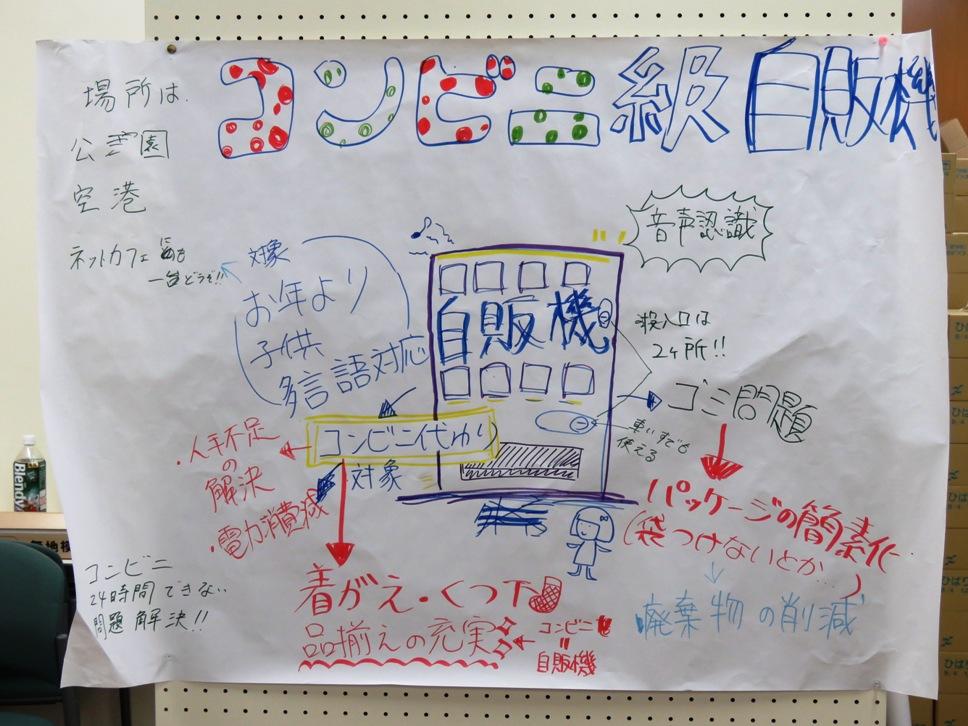 コンビニ級 自販機
場所は
公園
空港
ネットカフェ にも
一台どうぞ!!
対象
お年より
子供
多言語対応
音声認識
自販機
投入口は
2ヶ所!!
車いすでも
使える
ゴミ問題
パッケージの簡素化
(袋つけないとか…)
廃棄物の削減
コンビニ代わり
対象
・人手不足
の
解決
・電力消費減
着がえ・くつ下
品揃えの充実
コンビニ
=
自販機
コンビニ
24時間できない
問題解決!!
Blendy